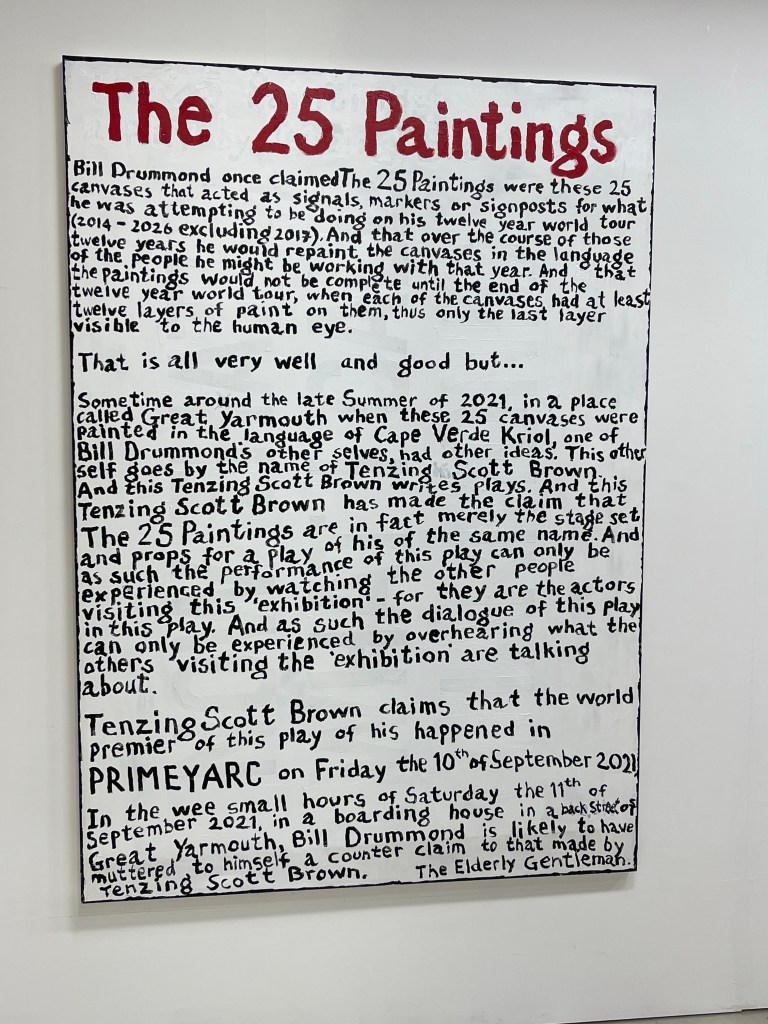 The 25 Paintings
Bill Drummond once claimed The 25 Paintings were these 25
canvases that acted as signals, markers or signposts for what
he was attempting to be doing on his twelve year world tour
(2014 - 2026 excluding 2017). And that over the course of those
twelve years he would repaint the canvases in the language
of the people he might be working with that year. And that
the paintings would not be complete until the end of the
twelve year world tour, when each of the canvases had at least
twelve layers of paint on them, thus only the last layer
visible to the human eye.
That is all very well and good but...
Sometime around the late Summer of 2021, in a place
called Great Yarmouth when these 25 canvases were
painted in the language of Cape Verde Kriol, one of
Bill Drummond's other selves, had other ideas. This other
self goes by the name of Tenzing Scott Brown.
And this Tenzing Scott Brown writes plays. And this
Tenzing Scott Brown has made the claim that
The 25 Paintings are in fact merely the stage set
and props for a play of his of the same name. And
as such the performance of this play can only be
experienced by watching the other people
visiting this 'exhibition' - for they are the actors
in this play. And as such the dialogue of this play
can only be experienced by overhearing what the
others visiting the 'exhibition' are talking
about.
Tenzing Scott Brown claims that the world
premier of this play of his happened in
PRIMEYARC on Friday the 10th of September 2021
In the wee small hours of Saturday the 11th of
September 2021, in a boarding house in a back street of
Great Yarmouth, Bill Drummond is likely to have
muttered to himself a counter claim to that made by
Tenzing Scott Brown. The Elderly Gentleman.